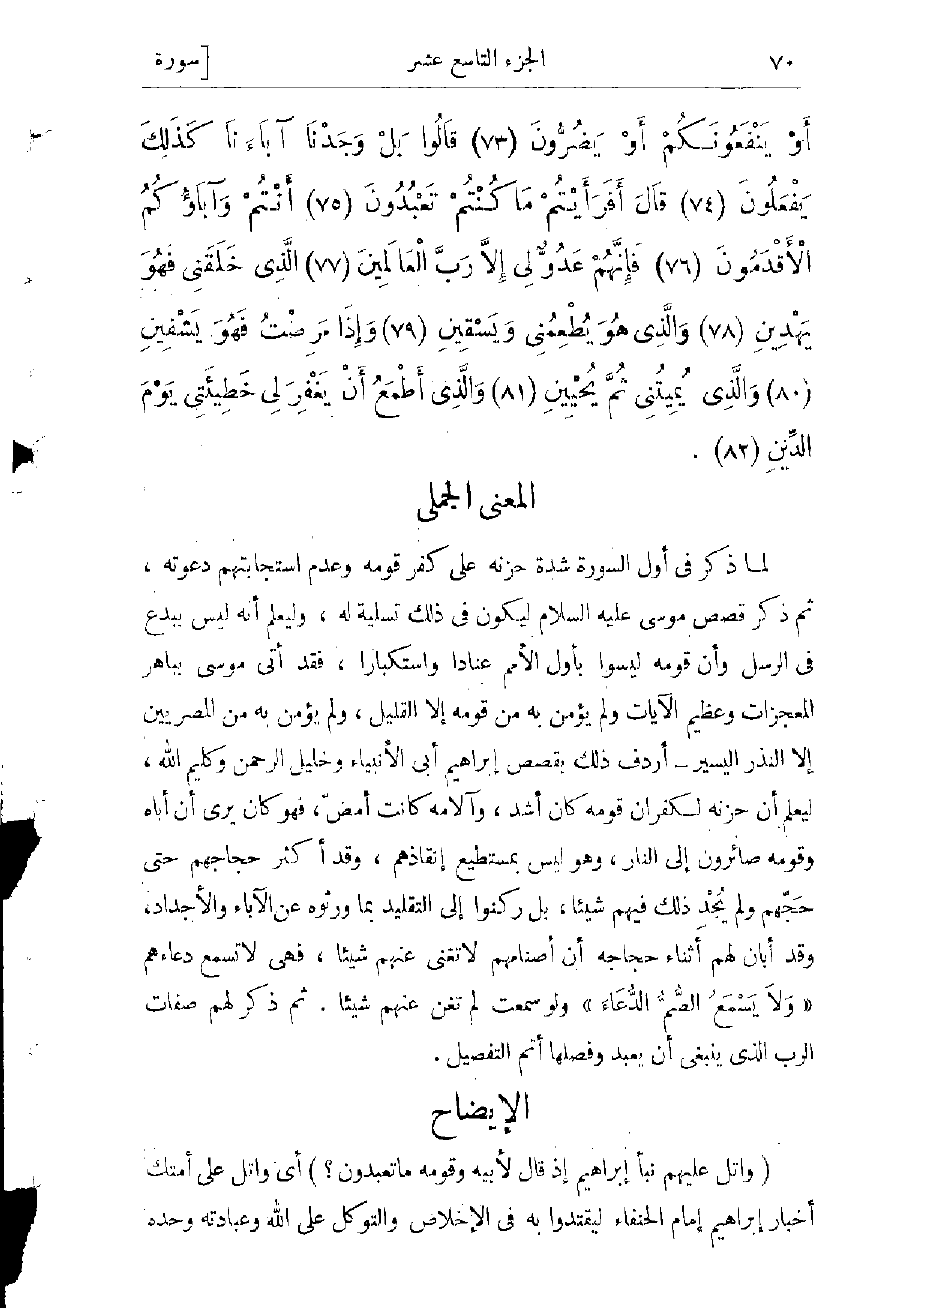 ٧٠ الجزء التاسع عشر [سورة
أَوْ يَنْفَعُونَكُمْ أَوْ يَضُرُّونَ (٧٣) قَالُوا بَلْ وَجَدْنَا آبَاءَنَا كَذَلِكَ
يَفْعَلُونَ (٧٤) قَالَ أَفَرَأَيْتُمْ مَا كُنْتُمْ تَعْبُدُونَ (٧٥) أَنْتُمْ وَآبَاؤُكُمُ
الْأَقْدَمُونَ (٧٦) فَإِنَّهُمْ عَدُوٌّ لِى إِلاَّ رَبَّ الْعَالَمِينَ (٧٧) الَّذِى خَلَقَنِى فَهُوَ
يَهْدِينِ (٧٨) وَالَّذِى هُوَ يُطْعِمُنِى وَيَسْقِينِ (٧٩) وَإِذَا مَرِضْتُ فَهُوَ يَشْفِينِ
(٨٠) وَالَّذِى يُمِيتُنِى ثُمَّ يُحْيِينِ (٨١) وَالَّذِى أَطْمَعُ أَنْ يَغْفِرَ لِى خَطِيئَتِى يَوْمَ
الدِّينِ (٨٢) .
المعنى الجملى
لما ذكر فى أول السورة شدة حزنه على كفر قومه وعدم استجابتهم دعوته ،
ثم ذكر قصص موسى عليه السلام ليكون فى ذلك تسلية له ، وليعلم أنه ليس ببدع
فى الرسل وأن قومه ليسوا بأول الأمم عنادا واستكبارا ، فقد أتى موسى بباهر
المعجزات وعظيم الآيات ولم يؤمن به من قومه إلا القليل ، ولم يؤمن به من المصريين
إلا النذر اليسير ــ أردف ذلك بقصص إبراهيم أبى الأنبياء وخليل الرحمن وكليم الله ،
ليعلم أن حزنه لكفران قومه كان أشد ، وآلامه كانت أمضّ ، فهو كان يرى أن أباه
وقومه صائرون إلى النار ، وهو ليس بمستطيع إنقاذهم ، وقد أكثر حجاجهم حتى
حَجّهم ولم يُجْدِ ذلك فيهم شيئا ، بل ركنوا إلى التقليد بما ورثوه عن الآباء والأجداد ،
وقد أبان لهم أثناء حجاجه أن أصنامهم لاتغنى عنهم شيئا ، فهى لاتسمع دعاءهم
« وَلاَ يَسْمَعُ الصُّمُّ الدُّعَاءَ » ولو سمعت لم تغن عنهم شيئا . ثم ذكر لهم صفات
الرب الذى ينبغى أن يعبد وفصلها أتم التفصيل .
الإيضاح
( واتل عليهم نبأ إبراهيم إذ قال لأبيه وقومه ماتعبدون ؟ ) أى واتل على أمتك
أخبار إبراهيم إمام الحنفاء ليقتدوا به فى الإخلاص والتوكل على الله وعبادته وحده